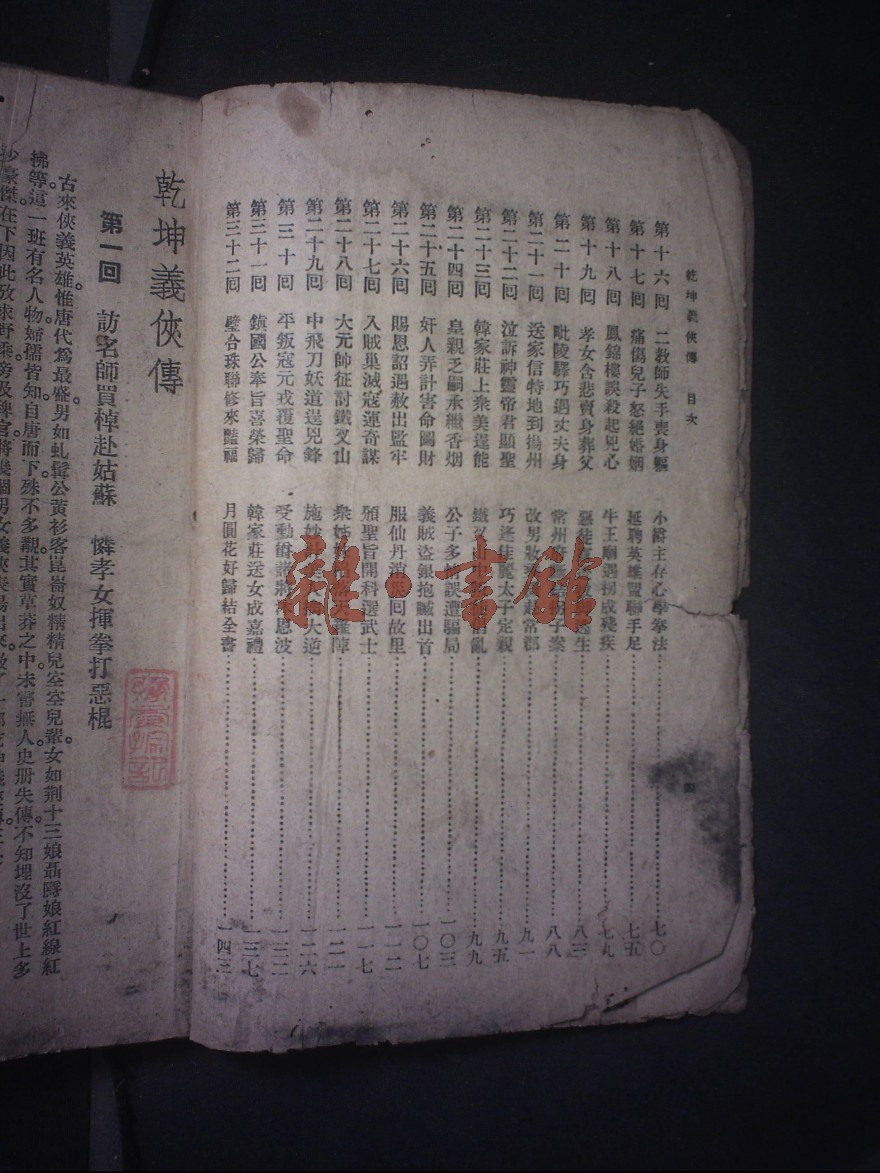 乾坤義俠傳 目次
四
第十六回 二教師失手喪身軀 小爵主存心學拳法 七〇
第十七回 痛傷兒子怒絕婚姻 延聘英雄盟聯手足 七五
第十八回 鳳錦樓誤殺起兇心 牛王廟遇拐成殘疾 七九
第十九回 孝女含悲賣身葬父 惡徒 生 八三
第二十回 毗陵驛巧遇丈夫身 常州府 子案 八八
第二十一回 送家信特地到揚州 改男妝 起常郡 九一
第二十二回 泣訴神靈帝君顯聖 巧逢佳麗太子定親 九五
第二十三回 韓家莊上衆美逞能 鐵叉山 亂 九九
第二十四回 皇親乏嗣承繼香烟 公子多情誤遭騙局 一〇三
第二十五回 奸人弄計害命圖財 義賊盜銀抱贓出首 一〇七
第二十六回 賜恩詔遇赦出監牢 服仙丹消災回故里 一一二
第二十七回 入賊巢滅寇運奇謀 頒聖旨開科選武士 一一七
第二十八回 大元帥征討鐵叉山 衆姑 陣 一二一
第二十九回 中飛刀妖道逞兇鋒 施妙計 大逆 一二六
第三十回 平叛寇元戎覆聖命 受勳爵諸將 恩波 一三二
第三十一回 鎮國公奉旨喜榮歸 韓家莊送女成嘉禮 一三七
第三十二回 璧合珠聯修來豔福 月圓花好歸結全書 一四三
乾坤義俠傳
第一回 訪名師買棹赴姑蘇 憐孝女揮拳打惡棍
古來俠義英雄。惟唐代爲最盛。男如虬髯公黃衫客崑崙奴精精兒空空兒輩。女如荆十三娘聶隱娘紅線紅
拂等。這一班有名人物。婦孺皆知。自唐而下。殊不多觀。其實草莽之中。未嘗無人。史册失傳。不知埋沒了世上多
少豪傑。在下因此攷求野乘。旁及稗官。將幾個男女義俠表揚出來。做了一部乾坤義俠傳
雜·書館